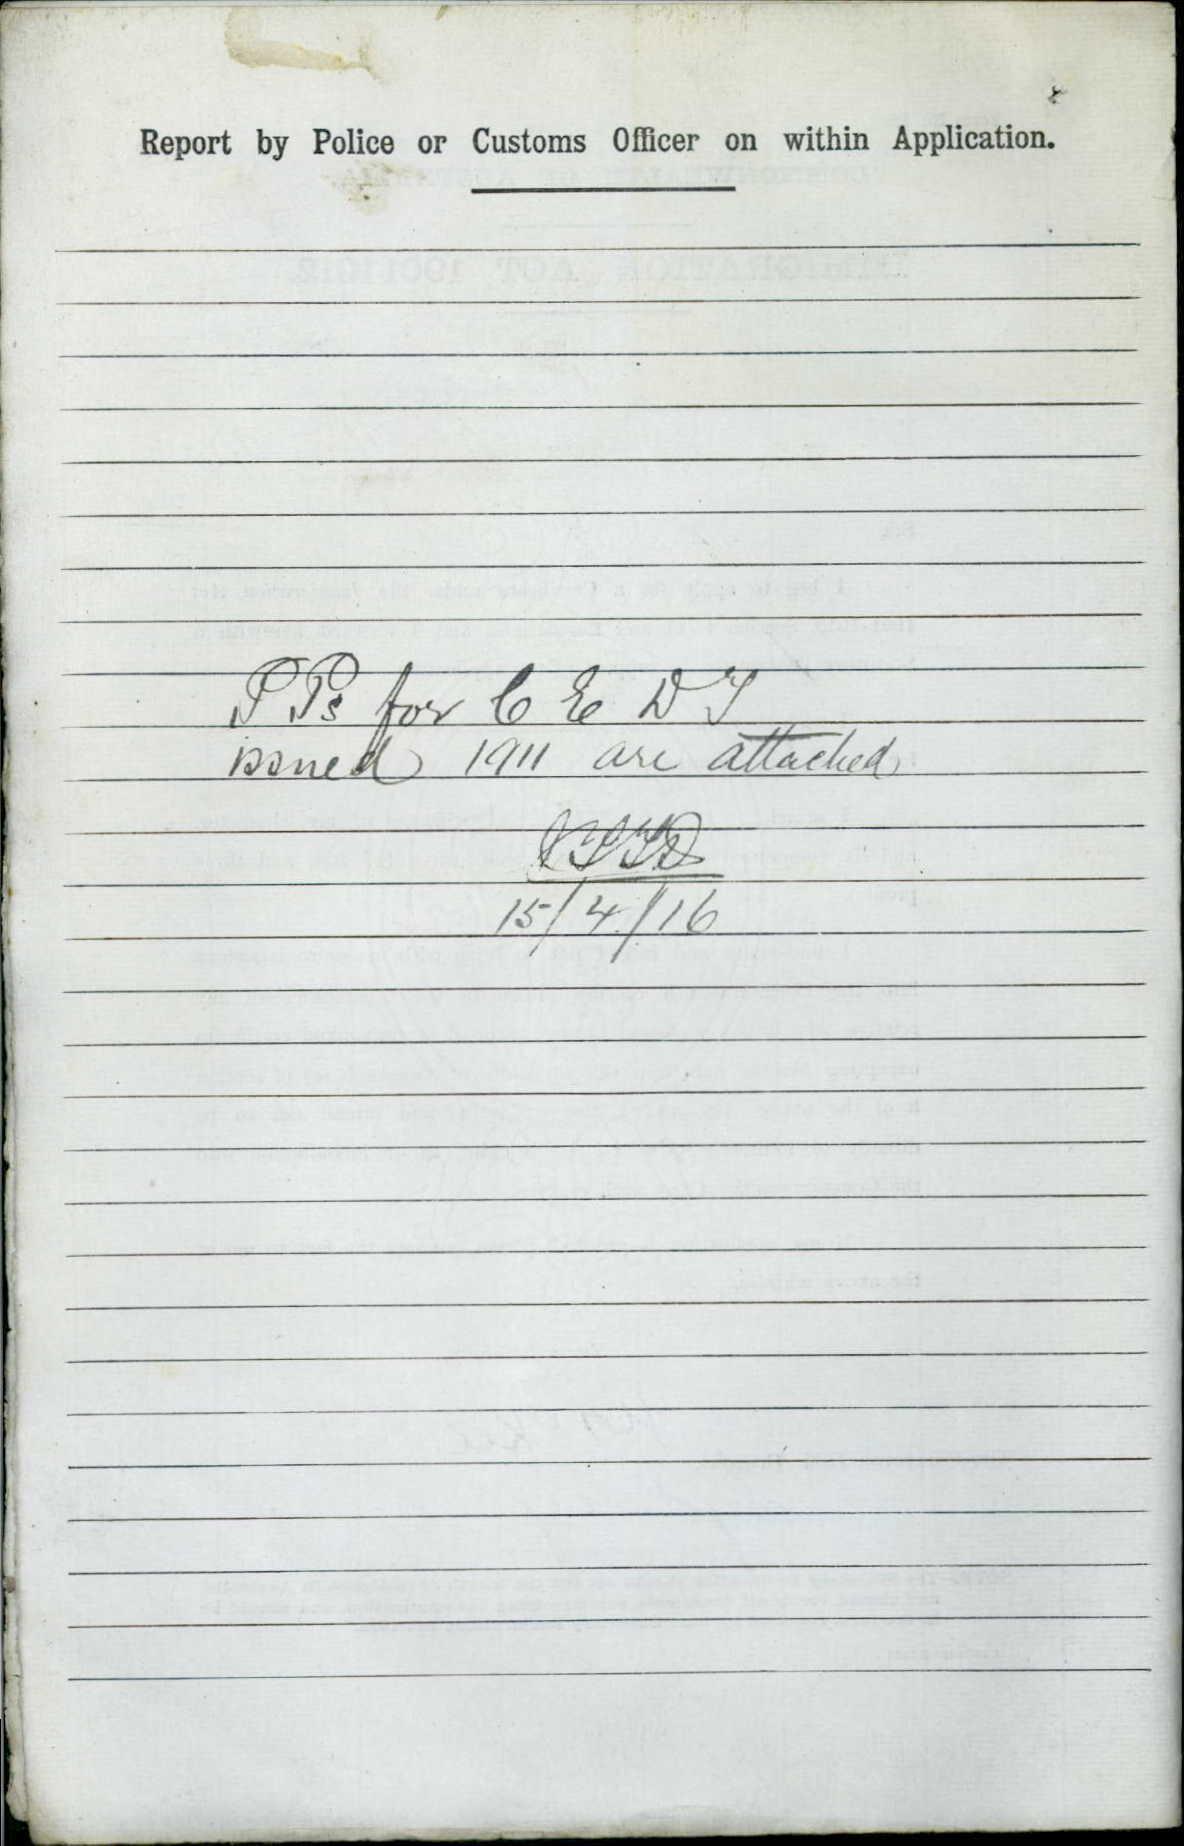 Report by Police or Customs Officer on within Application.
P Ps for C E D T
issued 1911 are attached
15/4/16